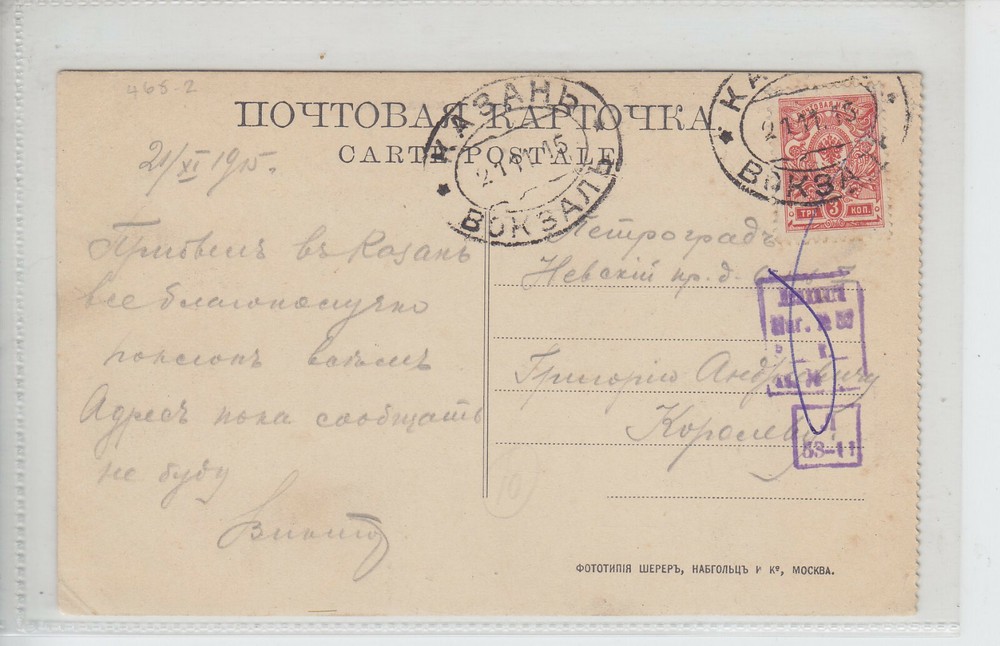 465-2
ПОЧТОВАЯ КАРТОЧКА
CARTE POSTALE
КАЗАНЬ
21 11 15
ВОКЗАЛЪ
КА
21 11 15
ВОКЗА
ПОЧТОВАЯ МАРКА
ТРИ 3 КОП.
21/XI 1915.
Прибыли въ Казань
все благополучно
поклонъ всѣмъ
Адресъ пока сообщать
не буду
Викторъ
Петроградъ
Невскій пр. д.
Григорію Андреевичу
Королеву
Маг. № 53
53-11
10
ФОТОТИПІЯ ШЕРЕРЪ, НАБГОЛЬЦЪ И Кº, МОСКВА.